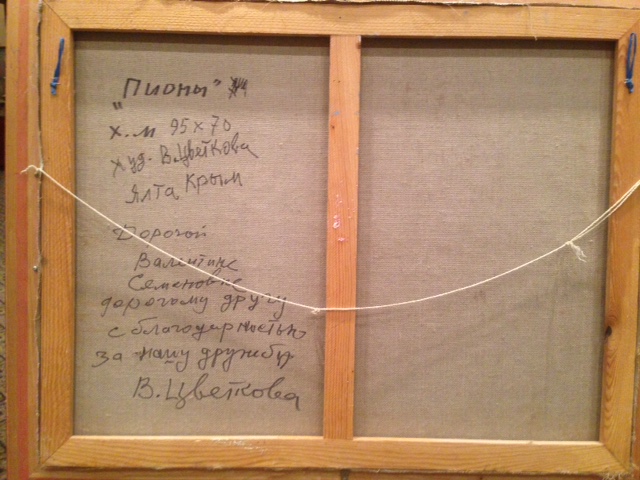 "Пионы"
х.м 95х70
худ. В.Цветкова
Ялта Крым
Дорогой
Валентине
Семеновне
дорогому другу
с благодарностью
за нашу дружбу
В.Цветкова